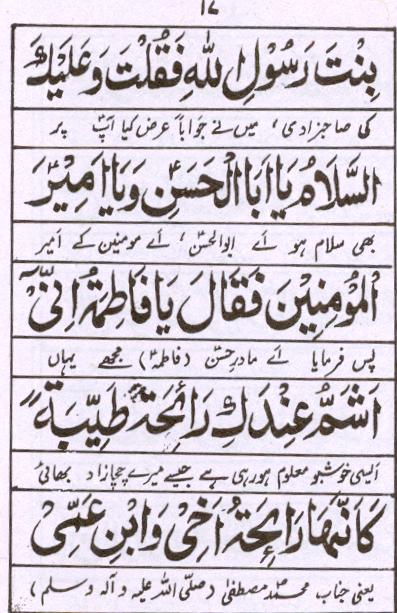 ۱۷
بِنْتَ رَسُوْلِ اللّٰهِ فَقُلْتُ وَعَلَيْكَ
کی صاحبزادی، میں نے جواباً عرض کیا آپؑ پر
السَّلَامُ يَا اَبَا الْحَسَنِ وَيَا اَمِيْرَ
بھی سلام ہو اے ابوالحسنؑ، اے مومنین کے امیر
الْمُؤْمِنِيْنَ فَقَالَ يَا فَاطِمَةُ اِنِّيْ
پس فرمایا اے مادرِ حسنؑ (فاطمہؑ) مجھے یہاں
اَشَمُّ عِنْدَكِ رَائِحَةً طَيِّبَةً
ایسی خوشبو معلوم ہو رہی ہے جیسے میرے چچازاد بھائی
كَاَنَّهَا رَائِحَةُ اَخِيْ وَابْنِ عَمِّيْ
یعنی جناب محمدؐ مصطفیٰ (صلّی اللہ علیہ وآلہ وسلم)